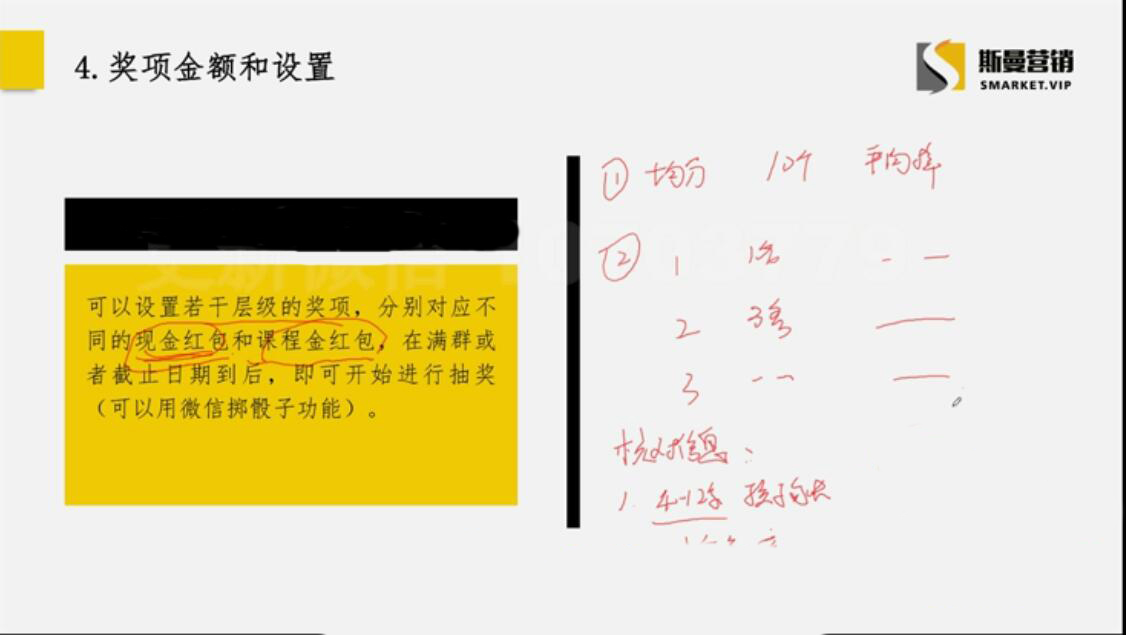 4. 奖项金额和设置
斯曼营销
SMARKET.VIP
可以设置若干层级的奖项，分别对应不
同的现金红包和课程金红包，在满群或
者截止日期到后，即可开始进行抽奖
（可以用微信掷骰子功能）。
① 均分 10个
② 1 1名
2
3
核对信息：
1. 4-12岁